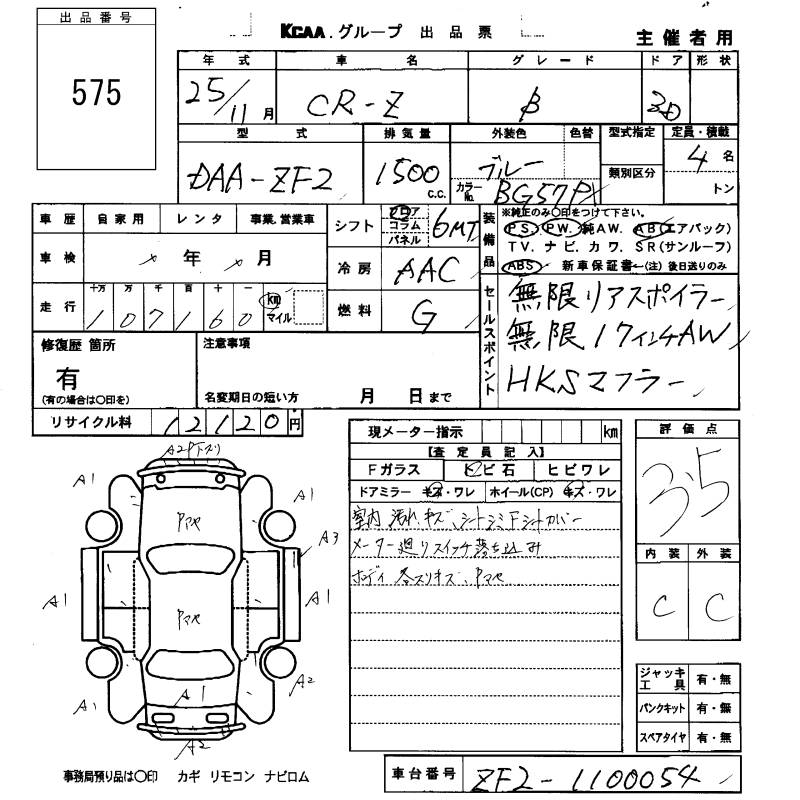 出品番号
575
KCAA.グループ 出品票
主催者用
年式 車名 グレード ドア 形状
25/11月 CR-Z β 3D
型式 排気量 外装色 色替 型式指定 定員・積載
DAA-ZF2 1500 C.C. ブルー 4名
カラーNo. BG57P 類別区分 トン
車歴 自家用 レンタ 事業.営業車
シフト フロア コラム パネル 6MT
装備品
※純正のみ〇印をつけて下さい。
P.S. P.W. 純AW. AB(エアバック)
TV. ナビ. カワ. SR(サンルーフ)
ABS 新車保証書←(注)後日送りのみ
車検 年 月
冷房 AAC
走行 十万 万 千 百 十 一
107160 km マイル
燃料 G
セールスポイント
無限リアスポイラー
無限17インチAW
HKSマフラー
修復歴 箇所
有
(有の場合は〇印を)
注意事項
名変期日の短い方 月 日まで
リサイクル料 12120円
現メーター指示 km
【査定員記入】
Fガラス トビ石 ヒビワレ
ドアミラー キズ・ワレ ホイール(CP) キズ・ワレ
室内 汚れ.キズ、シートシミ Fシートカバー
メーター廻りスイッチ落ち込み
ボディ 各スリキズ、Pマセ
評価点
3.5
内装 外装
C C
A2P下ズリ
A1 A1
Pマセ
A3
A1 A1
Pマセ
A1 A1 A2
A2
ジャッキ工具 有・無
パンクキット 有・無
スペアタイヤ 有・無
事務局預り品は〇印 カギ リモコン ナビロム
車台番号 ZF2-1100054